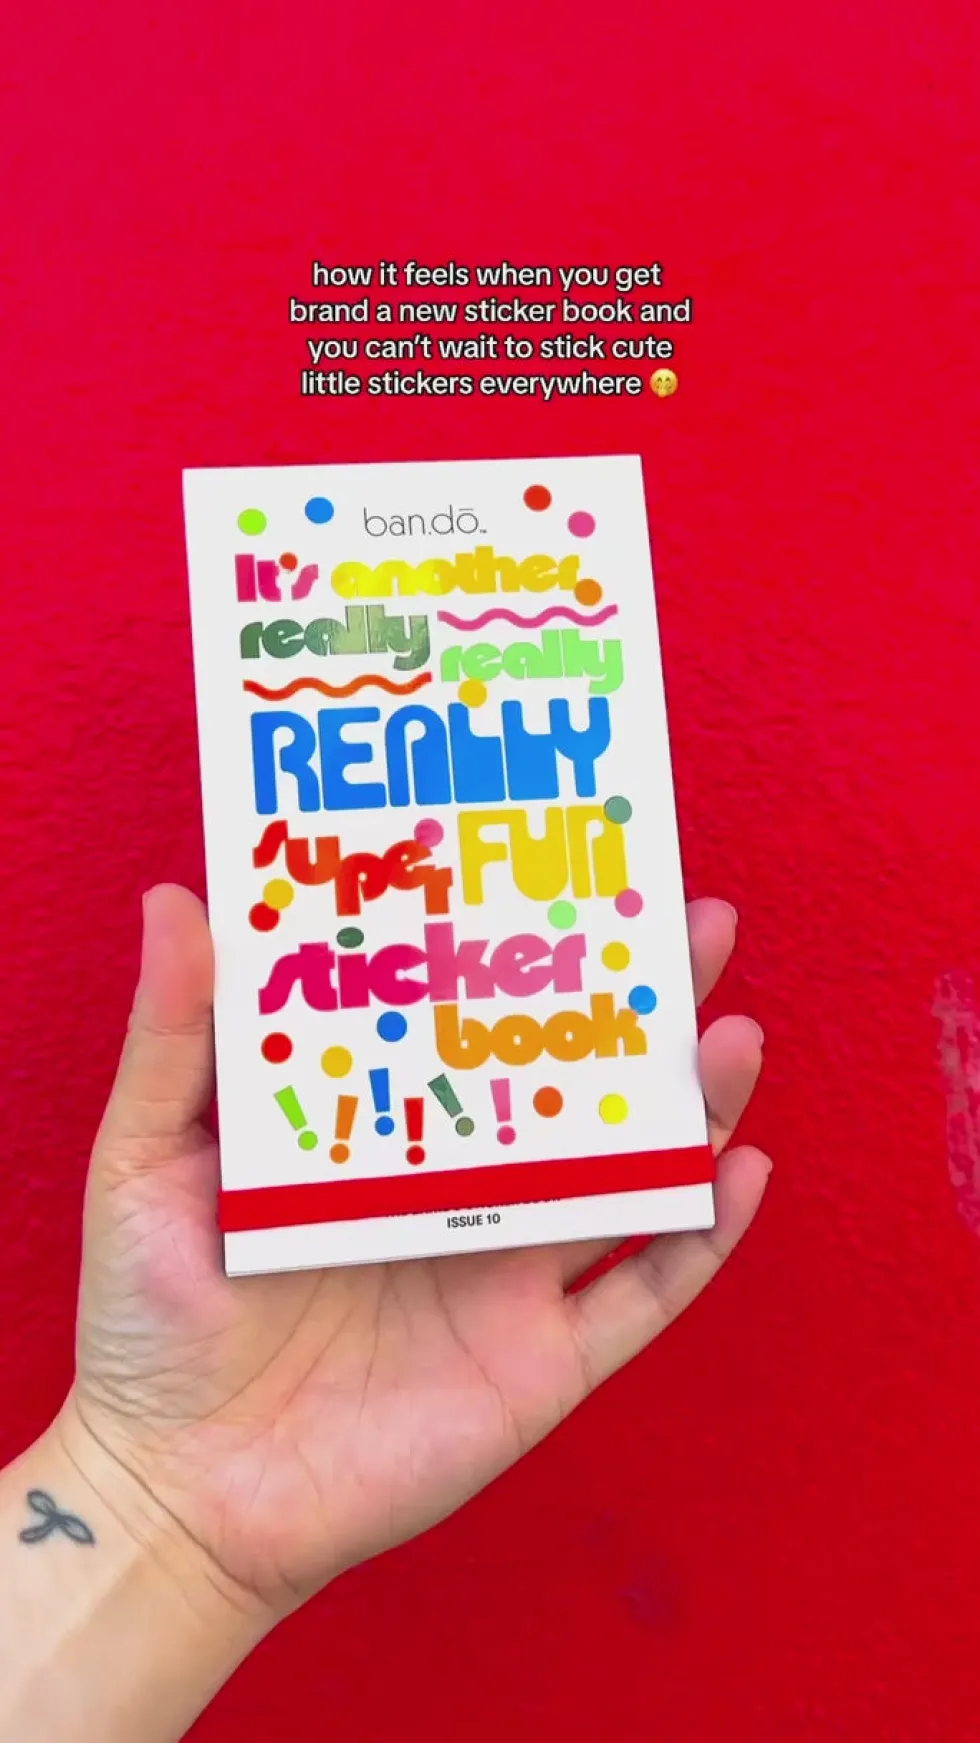 how it feels when you get
brand a new sticker book and
you can't wait to stick cute
little stickers everywhere 🤭
ban.dō™
It's another
really
really
REALLY
super FUN
sticker
book
! ! ! ! ! !
ISSUE 10